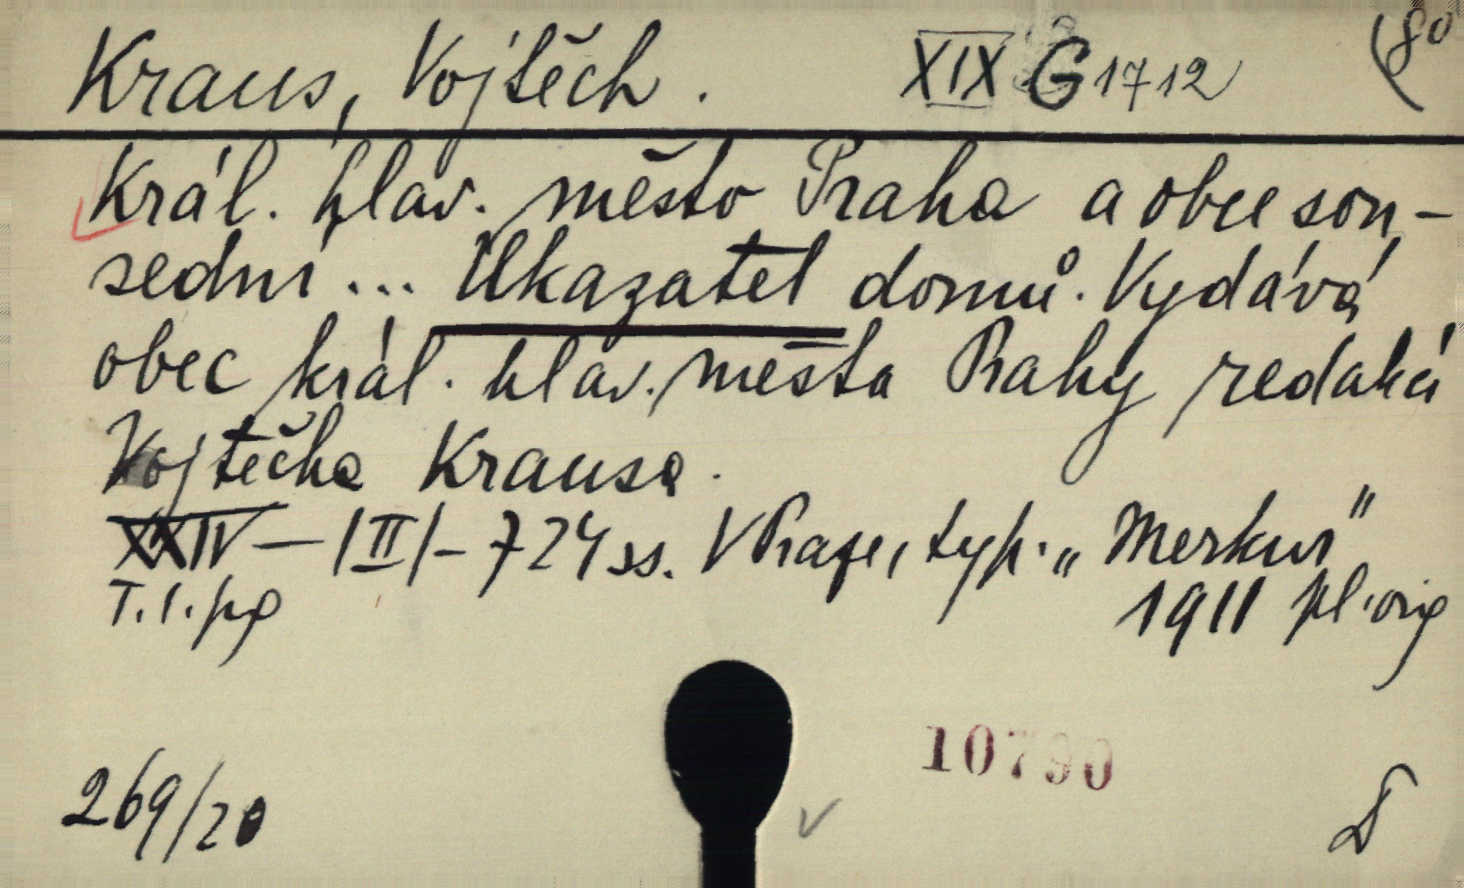 Kraus, Vojtěch. XIX G 1712 (80
Král. hlav. město Praha a obce sou-
sední ... Ukazatel domů. Vydává
obec král. hlav. města Prahy redakcí
Vojtěcha Krausa.
XXIV — |II| - 724 ss. V Praze, typ. „Merkur"
T. 1. pg 1911 pl. orig
10790
269/20